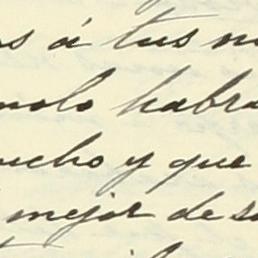 s á tus n
nolo habra
ucho y que
mejor de s